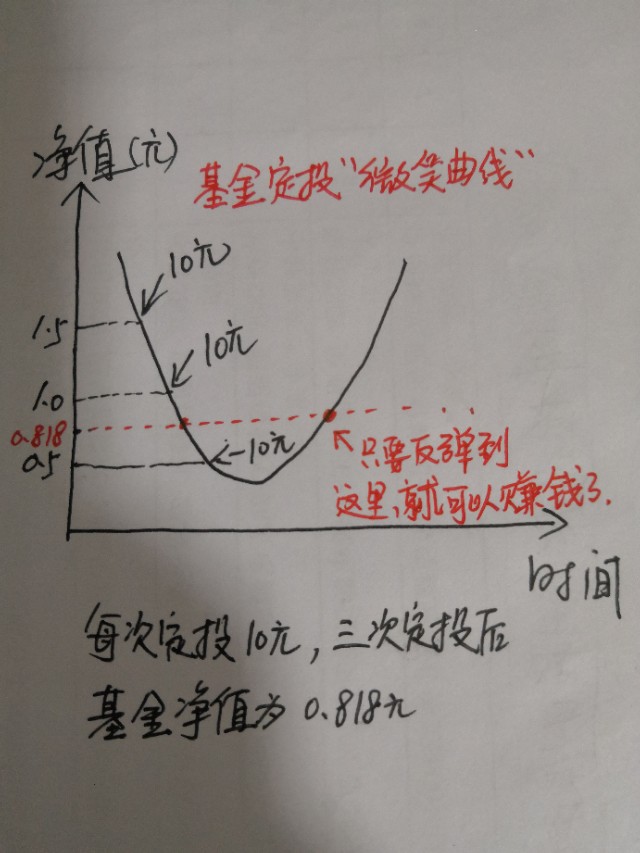 净值(元)
基金定投"微笑曲线"
10元
1.5
10元
1.0
0.818
0.5
10元
只要反弹到
这里,就可以赚钱了.
时间
每次定投10元,三次定投后
基金净值为0.818元